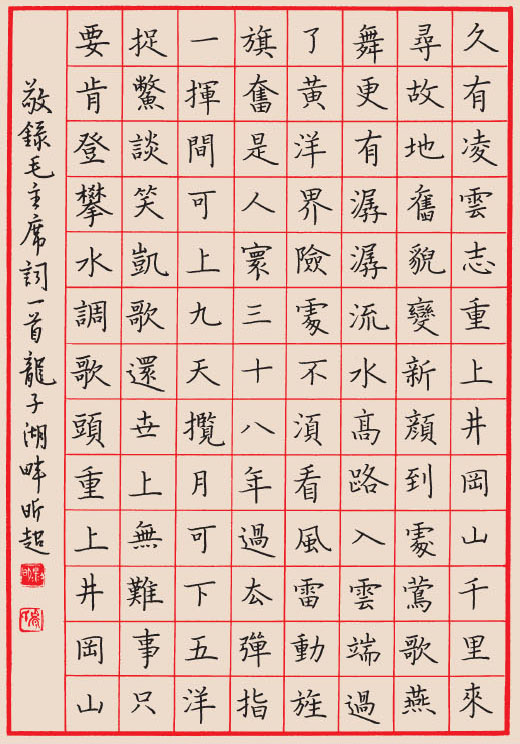 久有凌雲志重上井岡山千里來
尋故地舊貌變新顔到處鶯歌燕
舞更有潺潺流水高路入雲端過
了黃洋界險處不須看風雷動旌
旗奮是人寰三十八年過去彈指
一揮間可上九天攬月可下五洋
捉鱉談笑凱歌還世上無難事只
要肯登攀水調歌頭重上井岡山
敬錄毛主席詞一首龍子湖畔昕起